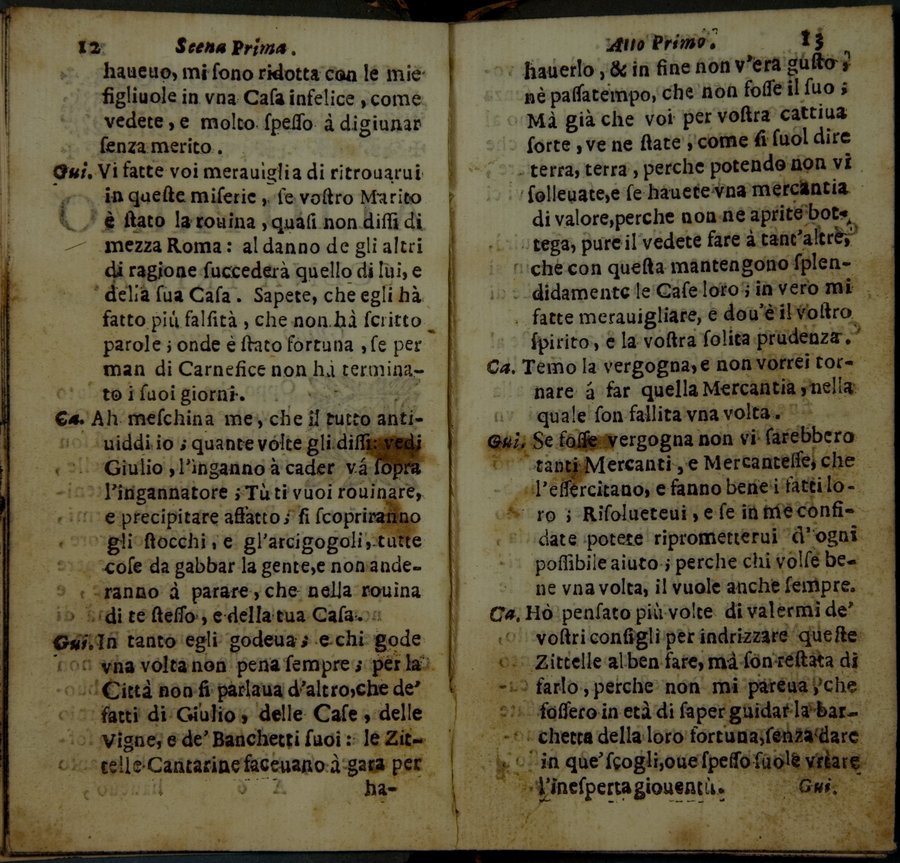 12 Scena Prima.
haueuo, mi ſono ridotta con le mie
figliuole in vna Caſa infelice, come
vedete, e molto ſpeſſo à digiunar
ſenza merito.
Gui. Vi fatte voi merauiglia di ritrouarui
in queſte miſerie, ſe voſtro Marito
è ſtato la rouina, quaſi non diſſi di
mezza Roma: al danno de gli altri
di ragione ſuccederà quello di lui, e
della ſua Caſa. Sapete, che egli hà
fatto più falſità, che non hà ſcritto
parole; onde è ſtato fortuna, ſe per
man di Carnefice non hà termina-
to i ſuoi giorni.
Ca. Ah meſchina me, che il tutto anti-
uiddi io; quante volte gli diſſi: vedi
Giulio, l'inganno à cader và ſopra
l'ingannatore; Tù ti vuoi rouinare,
e precipitare affatto; ſi ſcopriranno
gli ſtocchi, e gl'arcigogoli, tutte
coſe da gabbar la gente, e non ande-
ranno à parare, che nella rouina
di te ſteſſo, e della tua Caſa.
Gui. In tanto egli godeua; e chi gode
vna volta non pena ſempre; per la
Città non ſi parlaua d'altro, che de'
fatti di Giulio, delle Caſe, delle
Vigne, e de' Banchetti ſuoi: le Zit-
telle Cantarine faceuano à gara per
ha-
Atto Primo. 13
hauerlo, & in fine non v'era guſto,
nè paſſatempo, che non foſſe il ſuo;
Mà già che voi per voſtra cattiua
ſorte, ve ne ſtate, come ſi ſuol dire
terra, terra, perche potendo non vi
ſolleuate, e ſe hauete vna mercantia
di valore, perche non ne aprite bot-
tega, pure il vedete fare à tant'altre,
che con queſta mantengono ſplen-
didamente le Caſe loro; in vero mi
fatte merauigliare, e dou'è il voſtro
ſpirito, e la voſtra ſolita prudenza.
Ca. Temo la vergogna, e non vorrei tor-
nare á far quella Mercantia, nella
quale ſon fallita vna volta.
Gui. Se foſſe vergogna non vi ſarebbero
tanti Mercanti, e Mercanteſſe, che
l'eſſercitano, e fanno bene i fatti lo-
ro; Riſolueteui, e ſe in me confi-
date potete riprometterui d'ogni
poſſibile aiuto; perche chi volſe be-
ne vna volta, il vuole anche ſempre.
Ca. Hò penſato più volte di valermi de'
voſtri conſigli per indrizzare queſte
Zittelle al ben fare, mà ſon reſtata di
farlo, perche non mi pareua, che
foſſero in età di ſaper guidar la bar-
chetta della loro fortuna, ſenza dare
in que' ſcogli, oue ſpeſſo ſuole vrtare
l'ineſperta giouentù. Gui.